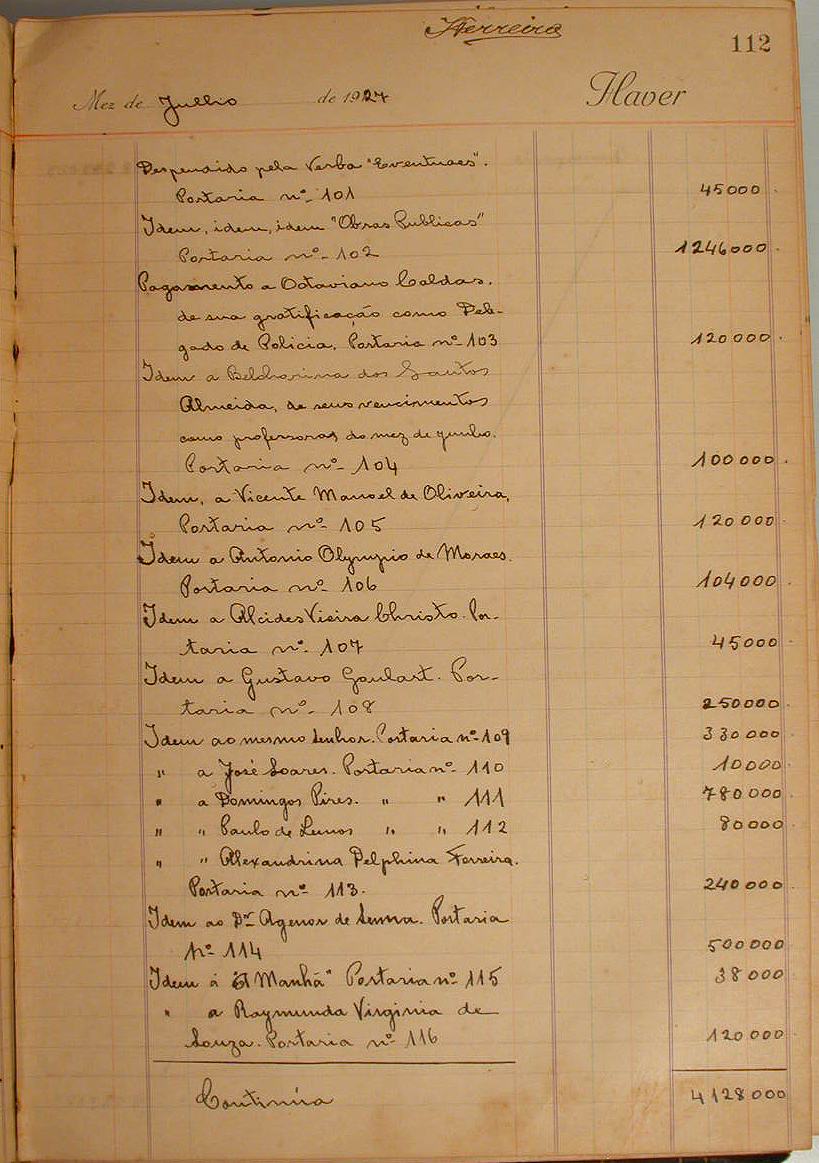 Ferreira
112
Mez de Julho de 1927 Haver
Despendido pela Verba "Eventuaes".
Portaria nº 101 45000
Idem, idem, idem "Obras Publicas"
Portaria nº 102 1246000
Pagamento a Octaviano Caldas.
de sua gratificação como Dele-
gado de Policia. Portaria nº 103 120000
Idem a Belchorina dos Santos
Almeida, de seus vencimentos
como professora, do mez de junho.
Portaria nº 104 100000
Idem, a Vicente Manoel de Oliveira,
Portaria nº 105 120000
Idem a Antonio Olympio de Moraes.
Portaria nº 106 104000
Idem a Alcides Vieira Christo. Por-
taria nº 107 45000
Idem a Gustavo Goulart. Por-
taria nº 108 250000
Idem ao mesmo Senhor. Portaria nº 109 330000
" a José Soares. Portaria nº 110 10000
" a Domingos Pires. " " 111 780000
" " Paulo de Lemos " " 112 80000
" " Alexandrina Delphina Ferreira.
Portaria nº 113. 240000
Idem ao Dr Agenor de Senna. Portaria
Nº 114 500000
Idem á "A Manhã" Portaria nº 115 38000
" a Raymunda Virginia de
Souza. Portaria nº 116 120000
Continúa 4128000